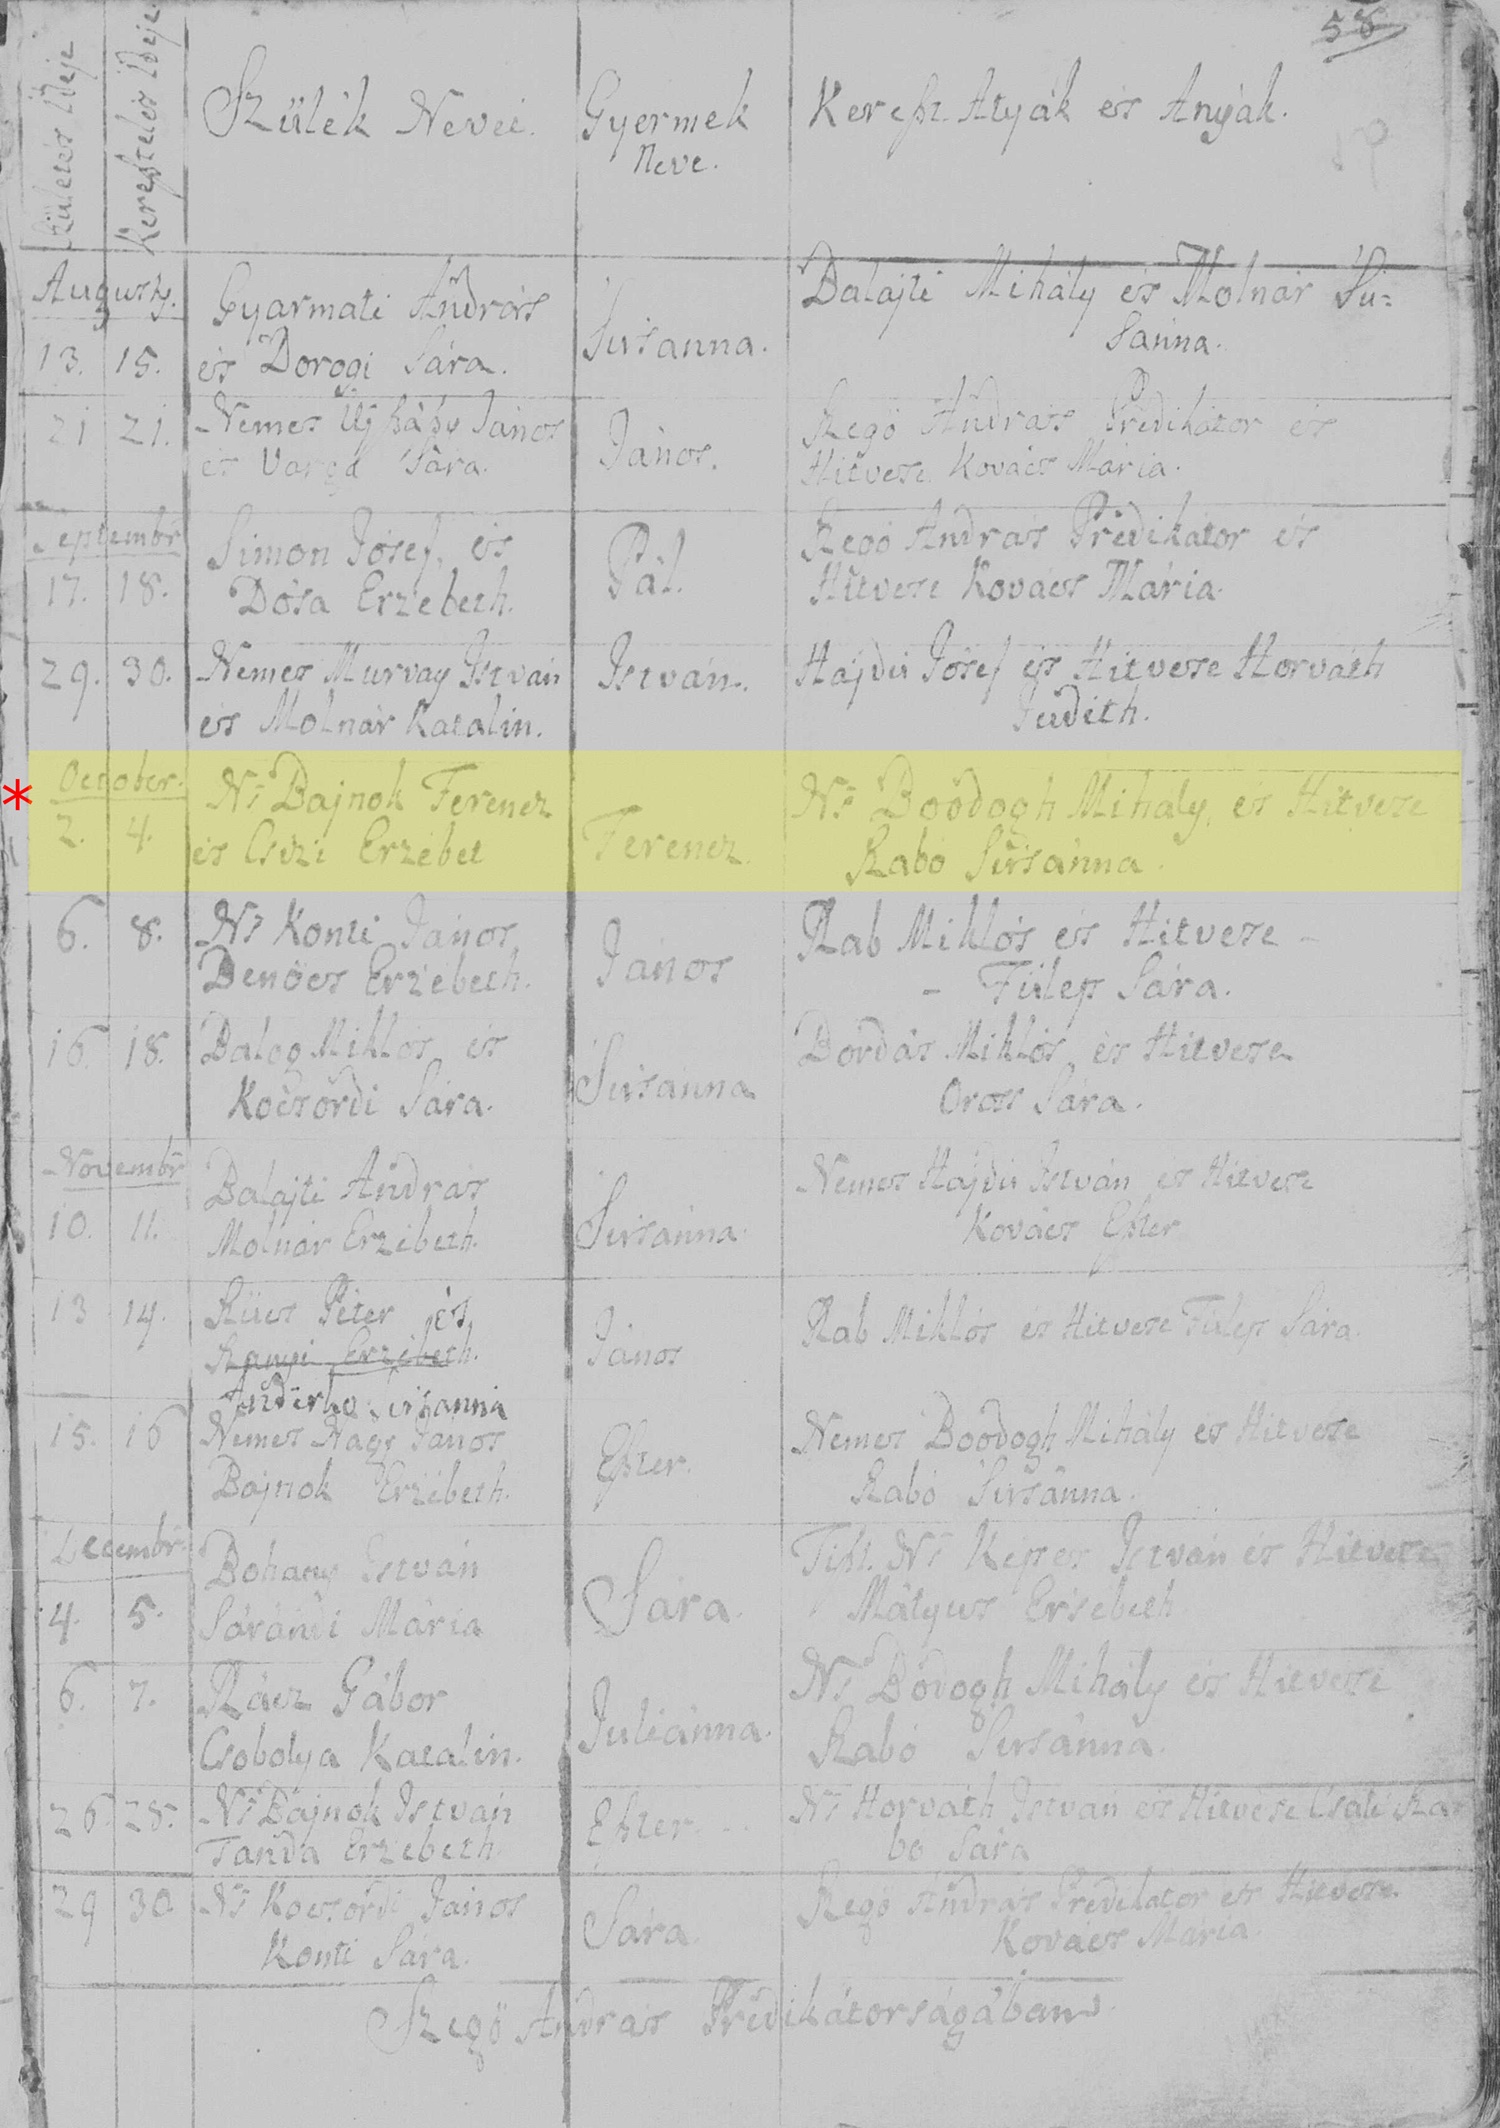 58
Születés Ideje
Keresztelés Ideje
Szülék Nevei.
Gyermek
Neve.
Kereszt Atyák és Anyák.
59
Augusty.
13. 15.
Gyarmati András
és Dorogi Sára.
Susanna.
Balajti Mihály és Molnár Su=
sánna.
21 21.
Nemes János
és Varga Sára.
János.
Szegő András Prédikátor és
Hitvese Kovács Mária.
Septembr
17. 18.
Simon Jósef, és
Dósa Erzébeth.
Pál.
Szegő András Prédikátor és
Hitvese Kovács Mária.
29. 30.
Nemes Murvay István
és Molnár Katalin.
István.
Hajdú Jósef és Hitvese Horváth
Judith.
October.
*
2. 4.
Ns Bajnok Ferencz
és Csizi Erzébet
Ferencz.
Ns Boódogh Mihály, és Hitvese
Szabó Susánna.
6. 8.
Ns Konti János,
Benőcs Erzébeth.
János
Rab Miklós és Hitvese –
– Fülep Sára.
16. 18.
Balog Miklós és
Kocsordi Sára.
Susánna
Bordás Miklós, és Hitvese
Oross Sára.
Novembr
10. 11.
Balajti András
Molnár Erzébeth.
Susánna.
Nemes Hajdú István és Hitvese
Kovács Eszter
13 14.
Szűcs Péter és
Szanyi Erzébeth.
Susanna
János
Rab Miklós és Hitvese Fülep Sára.
15. 16
Nemes Nagy János
Bajnok Erzébeth.
Eszter.
Nemes Boódogh Mihály és Hitvese
Szabó Susánna.
Decembr.
4. 5.
Bohany István
Sárándi Mária
Sára.
Ns Kepes István és Hitvese
Mátyus Ersébeth
6. 7.
Rácz Gábor
Csobolya Katalin.
Juliánna.
Ns Bódogh Mihály és Hitvese
Szabó Susánna.
26. 28.
Ns Bajnok István
Tanda Erzébeth
Eszter.
Ns Horváth István és Hitvese Csáti Sza-
bó Sára
29 30
Ns Kocsordi János
Konti Sára.
Sára.
Szegő András Prédikátor és Hitvese.
Kovács Mária.
Szegő András Prédikátorságában.